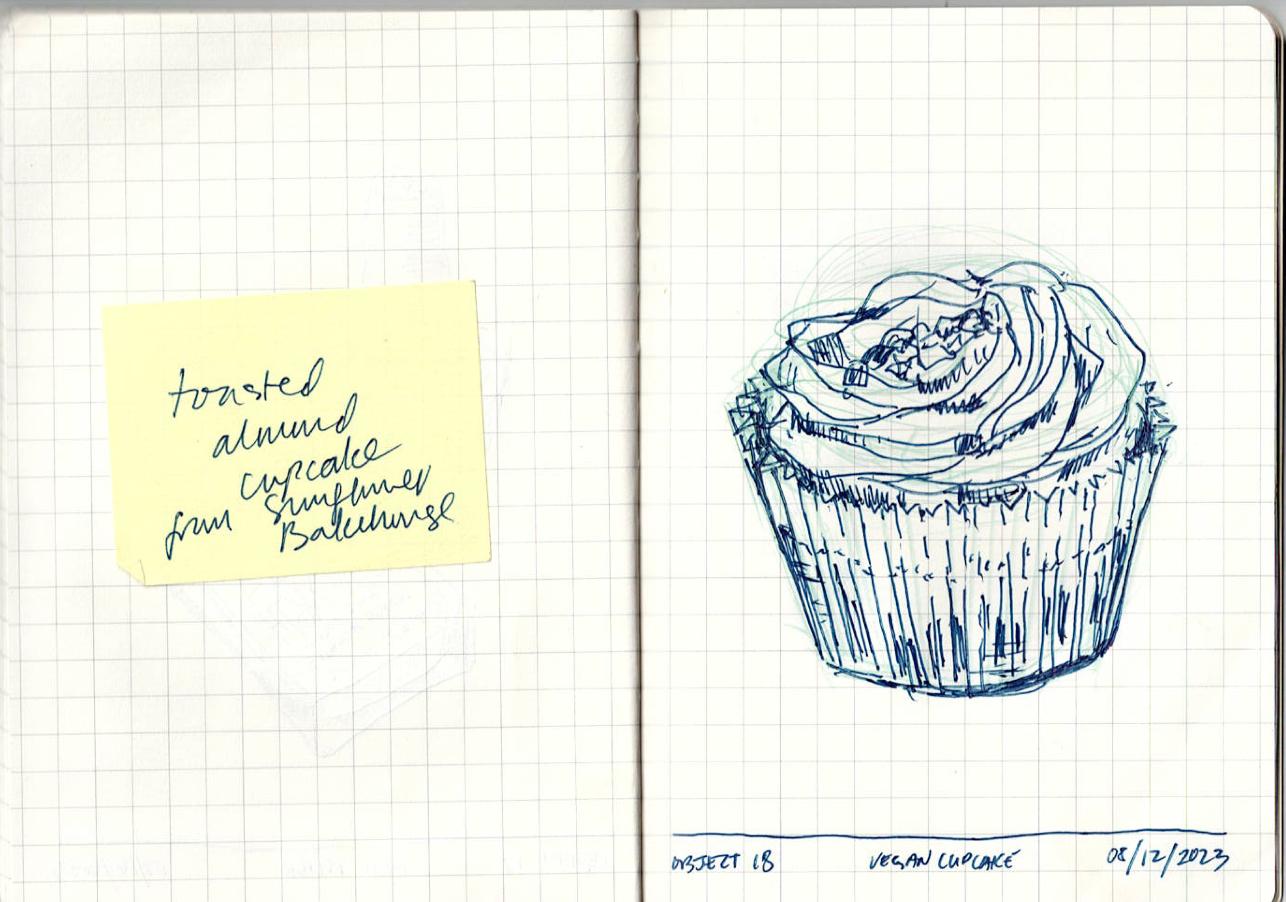 toasted
almond
cupcake
from Sunflower
Bakehouse
OBJECT 18 VEGAN CUPCAKE 08/12/2023